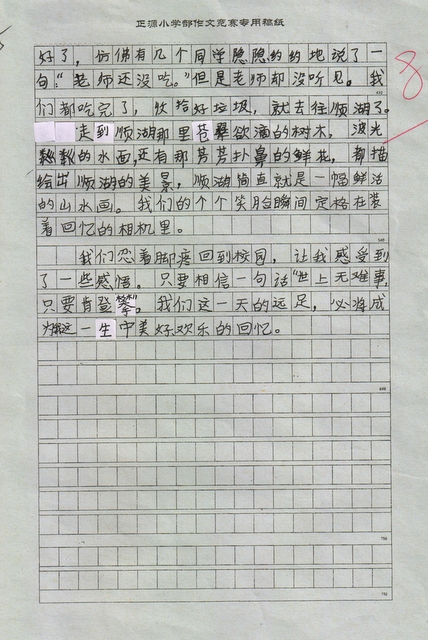 正源小学部作文竞赛专用稿纸
好了，仿佛有几个同学隐隐约约地说了一
句：“老师还没吃。”但是老师却没听见。我
们都吃完了，收拾好垃圾，就去往顺湖了。
走到顺湖那里苍翠欲滴的树木，波光
粼粼的水面，还有那芳芳扑鼻的鲜花，都描
绘出顺湖的美景，顺湖简直就是一幅鲜活
的山水画。我们的个个笑脸瞬间定格在装
着回忆的相机里。
我们忍着脚疼回到校园，让我感受到
了一些感悟。只要相信一句话“世上无难事，
只要肯登攀。我们这一天的远足，必将成
为我这一生中美好欢乐的回忆。
8